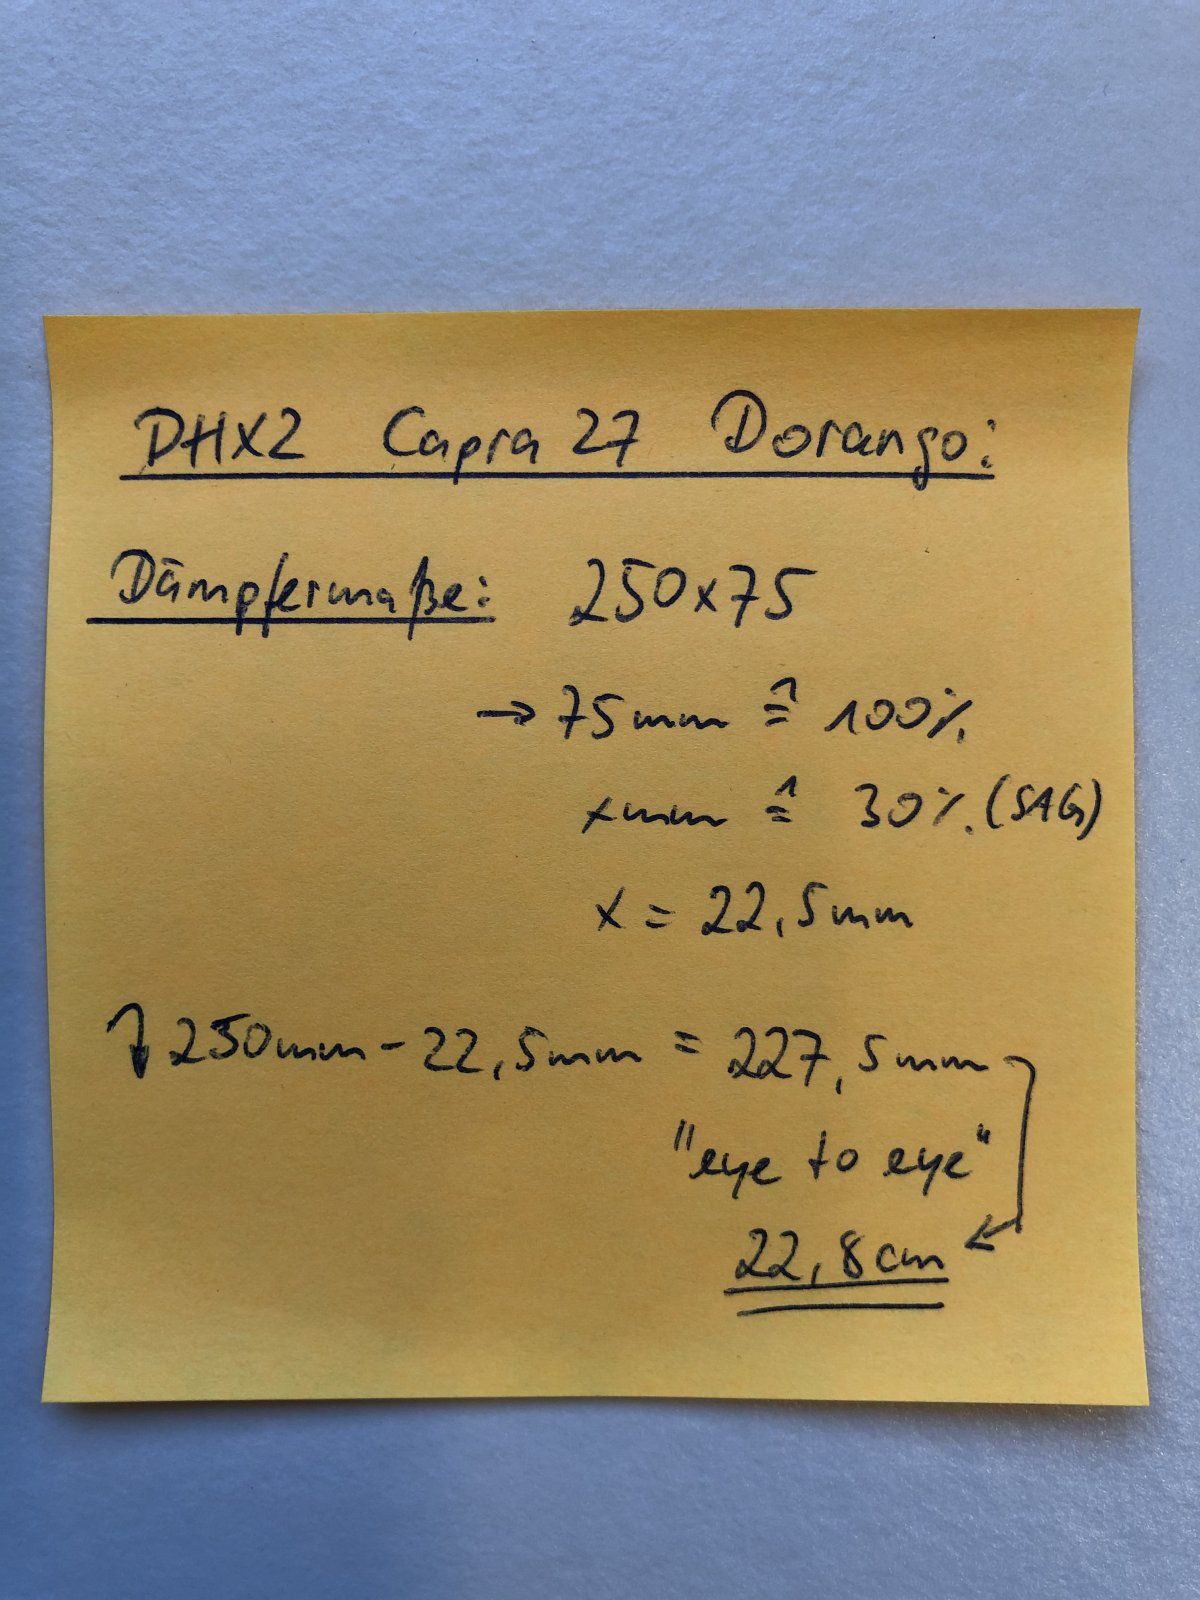 DHX2 Capra 27 Dorango:
Dämpfermaße: 250x75
→ 75mm ≙ 100%
xmm ≙ 30% (SAG)
x = 22,5mm
↴ 250mm - 22,5mm = 227,5mm
"eye to eye"
22,8cm